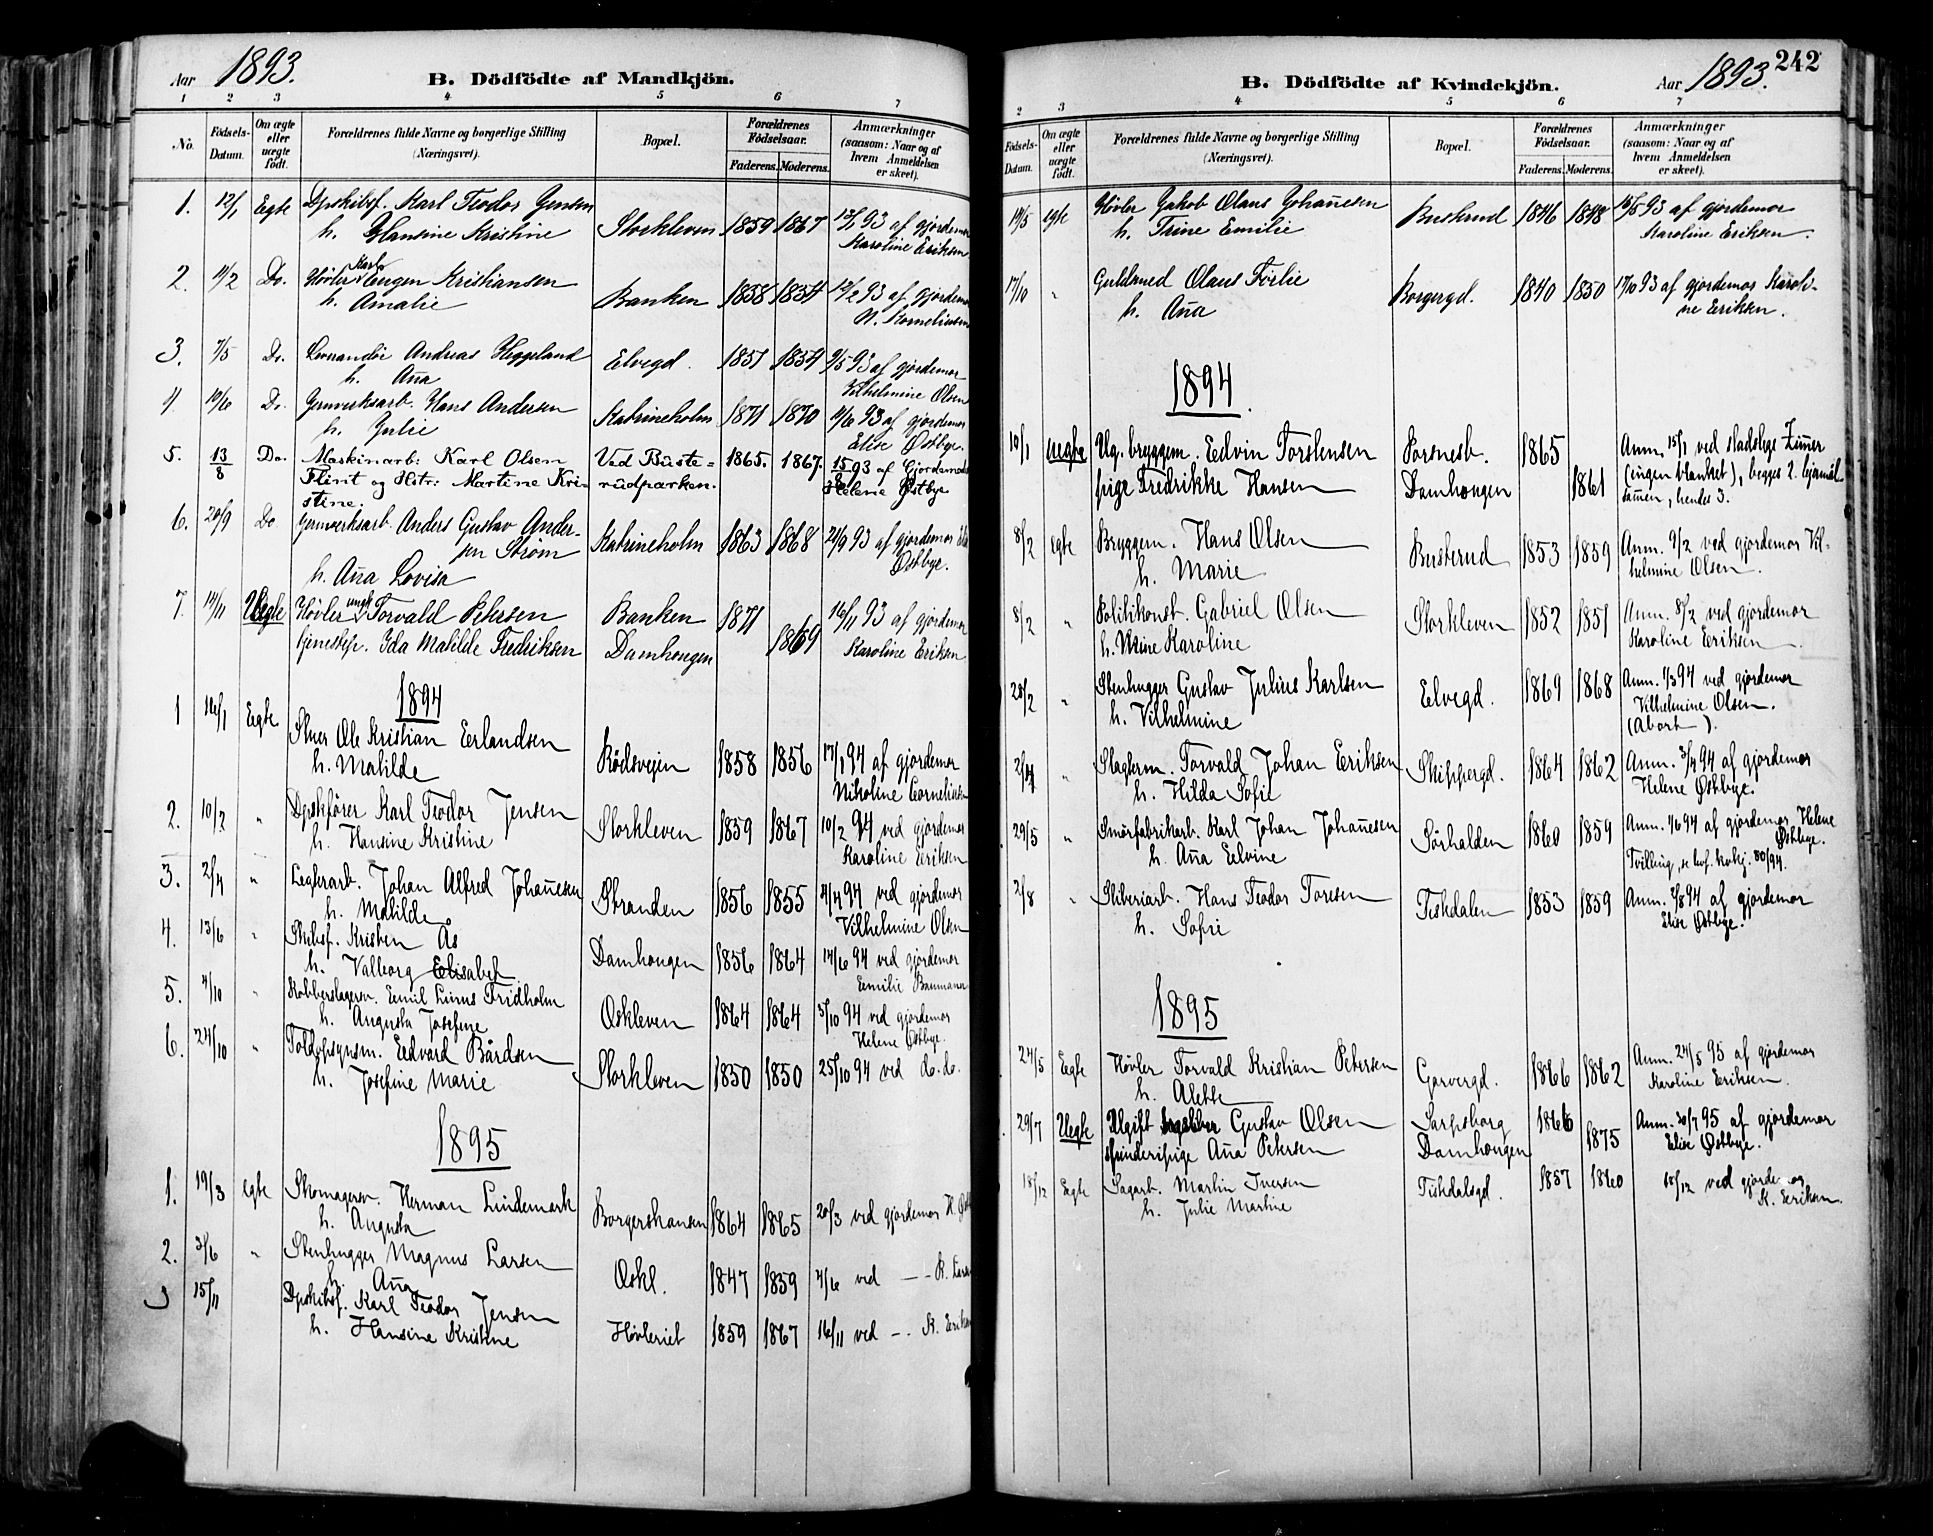 Aar 1893.
B. Dödfödte af Mandkjön.
1 2 3 4 5 6 7
No.
Fødsels-Datum.
Om ægte eller uægte födt.
Forældrenes fulde Navne og borgerlige Stilling
(Næringsvei).
Bopæl.
Forældrenes Födselsaar.
Faderens. Moderens.
Anmærkninger
(saasom: Naar og af
hvem Anmeldelsen
er skeet).
1. 12/1 Egte Dpskibsf. Karl Teodor Jensen Storkleven 1859 1867 93 af gjordemor
h. Hansine Kristine Karoline Eriksen
2. 11/2 Do. Høvler Karl Eugen Kristiansen Banken 1858 1854 12/2 93 af gjordemor
h. Amalie N. Korneliussen
3. 7/5 Do. Andreas Heggeland Elvegd. 1851 1854 9/5 93 af gjordemor
h. Aña Vilhelmine Olsen
4. 10/6 Do. Jernverksarb. Hans Andersen Katrineholm 1871 1870 11/6 93 af gjordemor
h. Julie Elise Østbye.
5. 13/8 Do. Maskinarb: Karl Olsen Ved Büste= 1865. 1867. 15/8 93 af Gjordemoder
Flint og Hstr: Martine Kri- rüdparken. Helene Østbye
stine.
6. 20/9 Do Jernverksarb. Anders Gustav Ander- Katrineholm 1863 1868 21/9 93 af gjordemor
sen Strøm Østbye.
h. Aña Lovisa
7. 14/11 Uegte Høvler ungk. Torvald Petersen Banken 1871 16/11 93 af gjordemor
tjenestep. Ida Matilde Fredriksen Damhougen 1869 Karoline Eriksen
1894
1 16/1 Egte Stuer Ole Kristian Erlandsen Rødsvejen 1858 1856 17/1 94 af gjordemor
h. Matilde Nikoline Corneliusen
2. 10/2 " Dpskfører Karl Teodor Jensen Storkleven 1859 1867 10/2 94 ved gjordemor
h. Hansine Kristine Karoline Eriksen
3. 2/4 " Lægterarb. Johan Alfred Johañesen Stranden 1856 1855 4/4 94 ved gjordemor
h. Matilde Vilhelmine Olsen
4. 13/6 " Skibsf. Kristen As Damhougen 1856 1864 14/6 94 ved gjordemor
h. Valborg Elisabet Emilie Baumann
5. 4/10 " Kobberslagersv. Emil Linus Fridholm Oskleven 1864 1864 5/10 94 ved gjordemor
h. Augusta Josefine Helene Østbye.
6. 24/10 " Toldopsynsm. Edvard Bårdsen Storkleven 1850 1850 25/10 94 ved do. do.
h. Josefine Marie
1895
1. 19/3 egte Skomagersv. Herman Lindemark Borgershansen 1864 1865 20/3 ved gjordemor H. Østb
h. Augusta
2. 3/6 " Stenhugger Magnus Larsen Oskl. 1847 1859 4/6 ved — - K. Lars
h. Aña
3 15/11 Dpskibsf. Karl Teodor Jensen Høvleriet 1859 1867 16/11 ved — . K. Eriksen
h. Hansine Kristine
B. Dödfödte af Kvindekjön.
Aar 1893. 242
2 3 4 5 6 7
Fødsels-Datum.
Om ægte eller uægte födt.
Forældrenes fulde Navne og borgerlige Stilling
(Næringsvei).
Bopæl.
Forældrenes Födselsaar.
Faderens. Moderens.
Anmærkninger
(saasom: Naar og af
hvem Anmeldelsen
er skeet).
14/5 egte Høvler Jakob Olaus Johañesen Busterud 1846 1848 16/5 93 af gjordemor
h. Trine Emilie Karoline Eriksen.
17/10 " Guldsmed Olaus Følie Borgergd. 1840 1850 17/10 93 af gjordemor Karoli-
h. Aña ne Eriksen.
1894.
10/1 Uegte Ug. bryggem. Edvin Torstensen Torsnesb. 1865 Anm. 15/1 ved stadslæge Zimer
pige Fredrikke Hansen Damhougen 1861 (ingen blanket), begges 2. lejermål
samen, hendes 3.
8/2 egte Bryggem. Hans Olsen Busterud 1853 1859 Anm. 9/2 ved gjordemor Vil-
h. Marie helmine Olsen.
8/2 " Politikonst. Gabriel Olsen Storkleven 1852 1851 Anm. 8/2 ved gjordemor
h. Mine Karoline Karoline Eriksen
28/2 " Stenhugger Gustav Julius Karlsen Elvegd. 1869 1868 Anm. 1/3 94 ved gjordemor
h. Vilhelmine Vilhelmine Olsen.
(Abort).
2/4 " Slagterm. Torvald Johan Eriksen Skippergd. 1864 1862 Anm. 3/4 94 af gjordemor
h. Hilda Sofie Helene Østbye.
29/5 " Smørfabrikarb. Karl Johan Johañesen Sørhalden 1860 1859 Anm. 1/6 94 af gjordemor Helene
h. Aña Elvine Østbye.
Tvilling, se lev. hvkj. 80/94.
2/8 " Sliberiarb. Hans Teodor Toresen Tistdalen 1853 1859 Anm. 3/8 94 af gjordemor
h. Sofie Elise Østbye.
1895
24/5 Egte Høvler Torvald Kristian Petersen Garvergd. 1866 1862 Anm. 24/5 95 af gjordemor
h. Alette Karoline Eriksen.
29/7 Uegte Ugift Gustav Olsen Sarpsborg 1866 Anm. 30/7 95 af gjordemor
spinderipige Aña Petersen Damhougen 1875 Elise Østbye.
18/12 Egte Sagarb. Martin Iversen Tistdalsgd. 1857 1860 18/12 ved gjordemor
h. Julie Martine K. Eriksen.